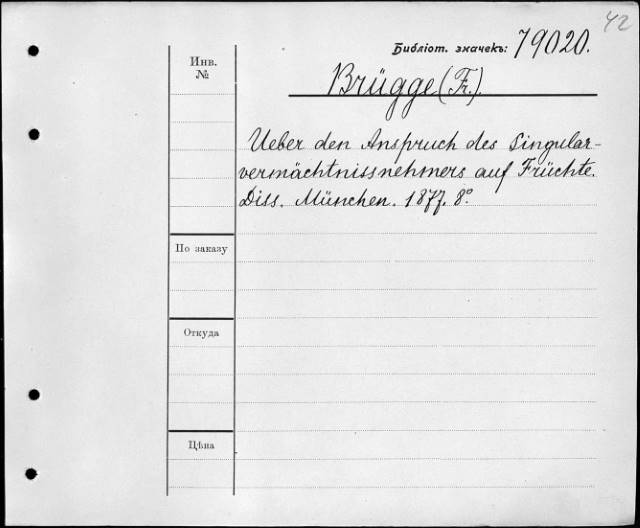 42
Библіот. значекъ: 79020.
Инв.
№
Brügge (Fr.).
Ueber den Anspruch des Singular-
vermächtnissnehmers auf Früchte.
Diss. München. 1877. 8º.
По заказу
Откуда
Цѣна